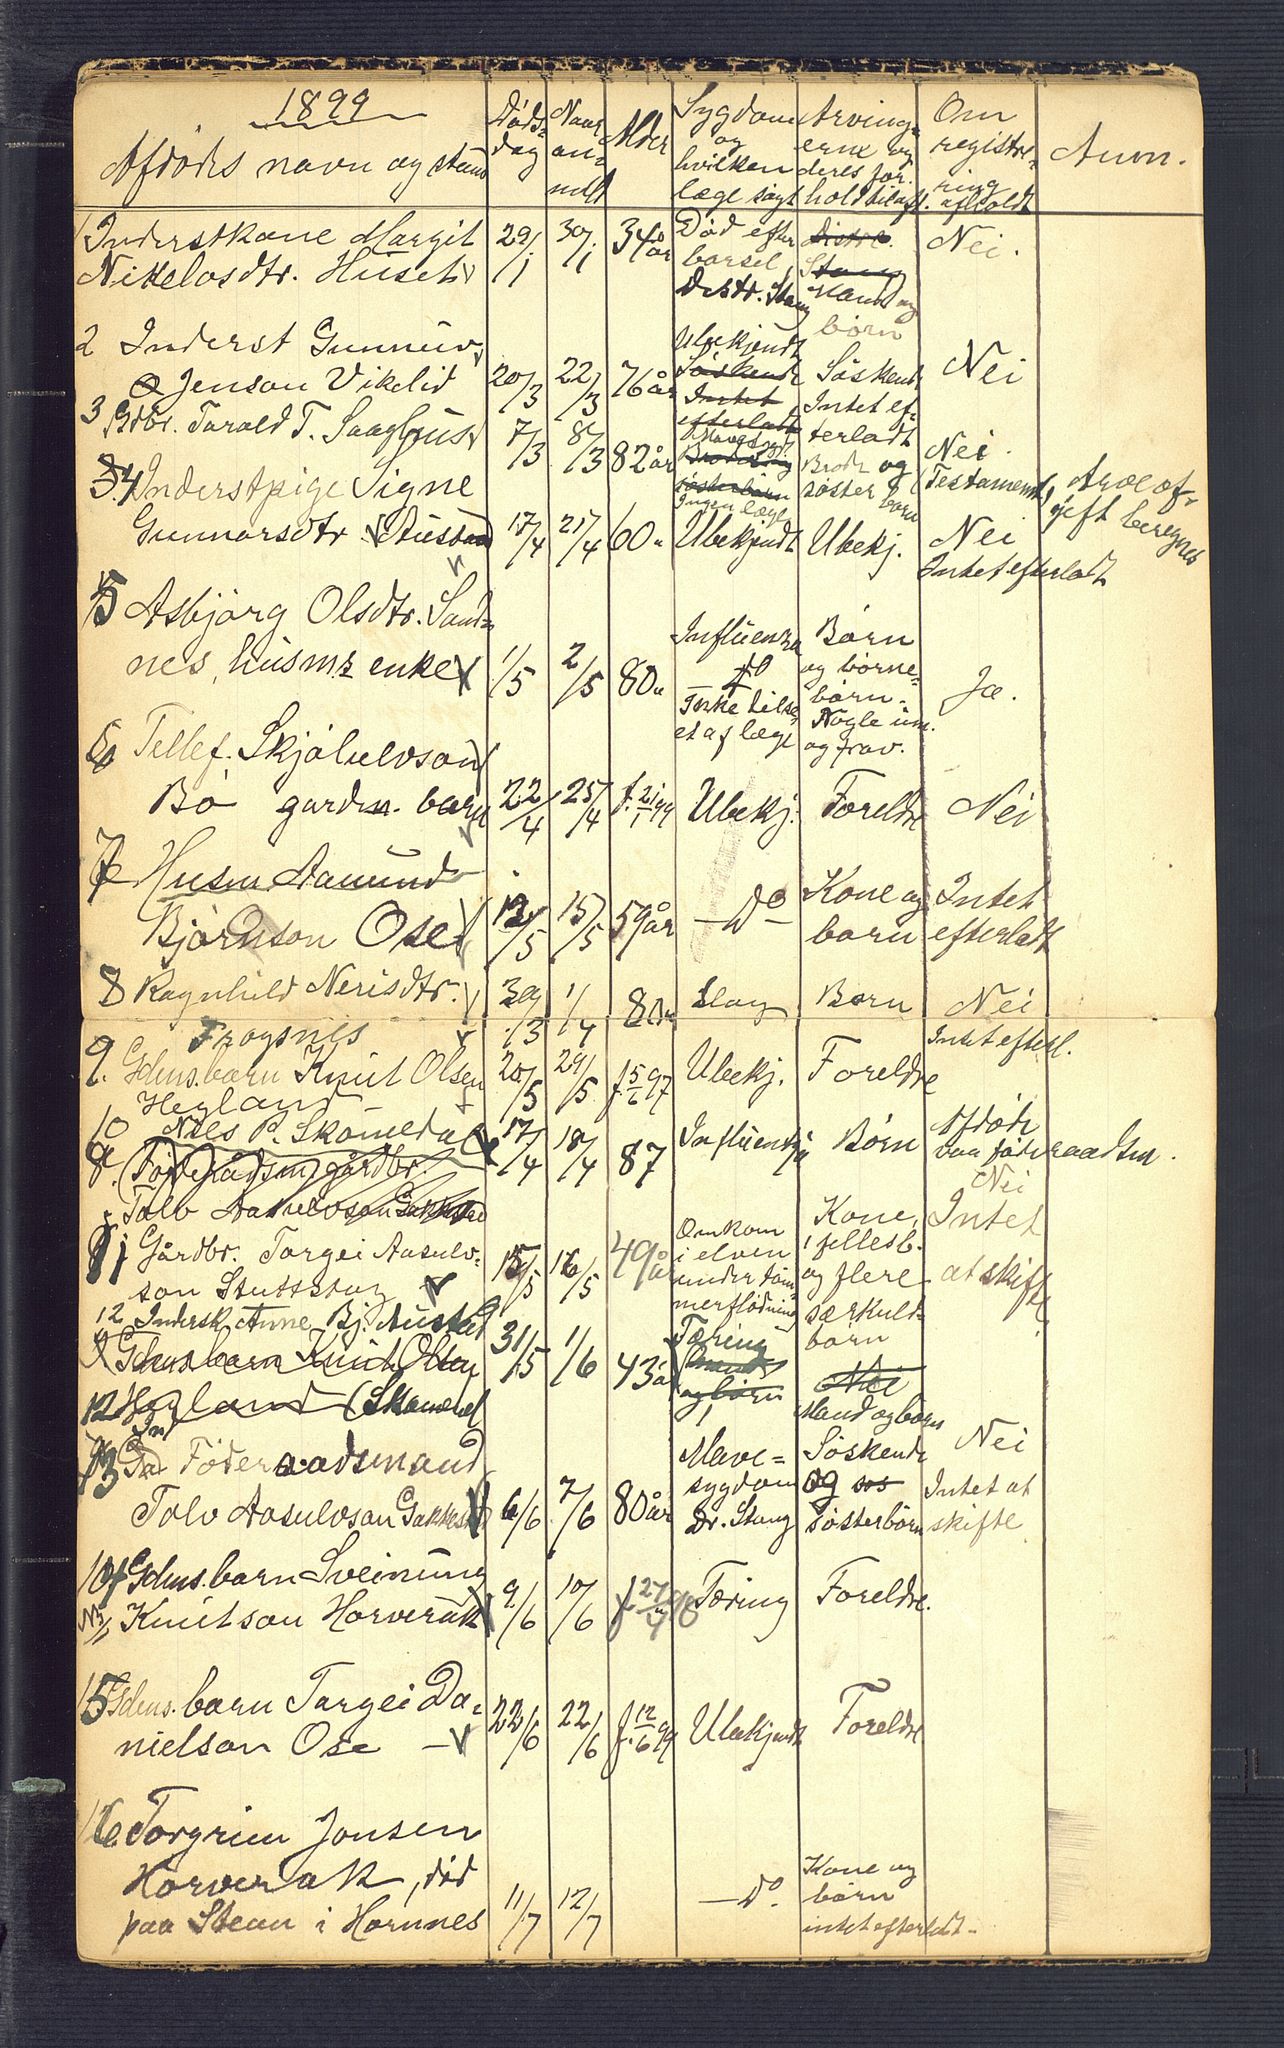 1899
Afdödes navn og stand | Döds- dag | Naar an- meldt | Alder | Sygdom og hvilken læge søgt | Arving- erne og deres for- hold til afd. | Om registre- ring afholdt | Anm.
1 Inderstkone Margit Nikelosdtr. Huset | 29/1 | 30/1 | 34 år | Död efter barsel, Distr. Stang | Distr. Stang Mand og börn | Nei.
2 Inderst Gunnuv Jenson Vikelid | 20/3 | 22/3 | 76 år | Ubekjendt Söskende Intet efterladt | Söskende Intet ef- terladt | Nei
3 Gdbr. Tarald T. Saaghus | 7/3 | 8/3 | 82 år | Broder og søsterbörn Ingen læge | Broder og søster börn | Nei. Testament | Arveaf- gift beregnes
4 Inderstpige Signe Gunnarsdtr. Austad | 17/4 | 21/4 | 60 " | Ubekjendt | Ubekj. | Nei Intet efterladt
5 Asbjörg Olsdtr. Sand- nes, husm. enke | 1/5 | 2/5 | 80 " | Influenza Do Inke tilse- et af læge | Börn og börne- börn. Nogle um. og frav. | Ja.
6 Tellef Skjólulvson Bó gardm. barn | 22/4 | 25/4 | f. 21/1 99 | Ubekj. | Foreldre | Nei
7 Husm. Aamund Björnson Ose | 12/5 | 15/5 | 59 år | — Do — | Kone og barn | Intet efterladt
8 Ragnhild Nerisdtr. Frøysnes | 30/3 | 1/4 | 80 " | Slag | Børn | Nei Intet efterl.
9. Gdms. barn Knut Olsen Hegland | 28/5 | 29/5 | f. 5/6 97 | Ubekj. | Foreldre
10 Nils P. Skomedal | 17/4 | 18/4 | 87 | Influentsja | Börn | Afdöde var föderaadsm. Nei
(Föderådsm, gårdbr. Tolv Aasulvson Gakkestad
11 Gårdbr. Targei Aasulv- son Stuttstog | 15/5 | 16/5 | 49 år | Omkom i elven under töm- merflödning | Kone, i fellesb. og flere særkuld- börn | Intet at skifte
12 Indersk. Anne Bj. Austad | 31/5 | 1/6 | 43 år | Tæring Mand og börn | Nei Mand og børn | Nei
Gdms barn Knut Olsen
12 Hegland (Skomedal
13 Ind Föderaadsmand Tolv Aasulvson Gakkestad | 6/6 | 7/6 | 80 år | Mave= sygdom Dr. Stang | Söskende og sös Søsterbörn | Intet at skifte
14 Gdms. barn Sveinung Knutson Horverak | 9/6 | 10/6 | f. 27/4 98 | Tæring | Foreldre.
15 Gdms. barn Targei Da- nielson Ose | 22/6 | 22/6 | f. 12/6 99 | Ubekjendt | Foreldre
16 Torgrim Jonsen Horverak, död paa Stean i Hornnes | 11/7 | 12/7 | — Do. | Kone og börn intet efterladt.